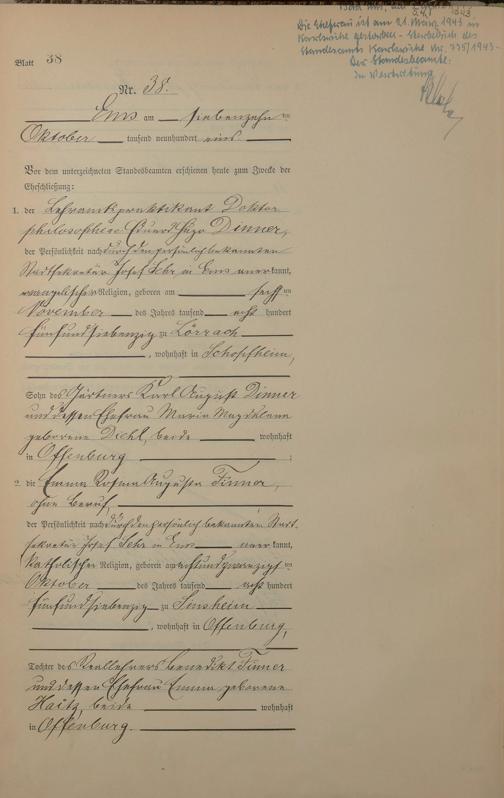 Die Ehefrau ist am 21. März 1943 in
Karlsruhe gestorben - Sterbebuch des
Standesamts Karlsruhe Nr. 735/1943 -
Der Standesbeamte:
In Vertretung
Blatt 38
Nr. 38.
Ems am siebenzehn ten
Oktober tausend neunhundert eins
Vor dem unterzeichneten Standesbeamten erschienen heute zum Zwecke der
Eheschließung:
1. der Lehramtspraktikant Doktor
philosophiae Eduard Hugo Dinner,
der Persönlichkeit nach durch den persönlich bekannten
Stadtsekretär Josef in Ems anerkannt,
evangelischer Religion, geboren am sechsten
November des Jahres tausend acht hundert
fünfundsiebenzig zu Lörrach
, wohnhaft in Schopfheim,
Sohn des Gärtners Karl August Dinner
und dessen Ehefrau Maria Magdalena
geborene Diehl, beide wohnhaft
in Offenburg ;
2. die Emma Rosina Augusta Finner,
ohne Beruf,
der Persönlichkeit nach durch den persönlich bekannten Stadt-
sekretär Josef in Ems anerkannt,
katholischer Religion, geboren am achtundzwanzigsten
Oktober des Jahres tausend acht hundert
fünfundsiebenzig zu Sinsheim
, wohnhaft in Offenburg,
Tochter des Reallehrers Benedikt Finner
und dessen Ehefrau Emma geborene
Haitz, beide wohnhaft
in Offenburg.